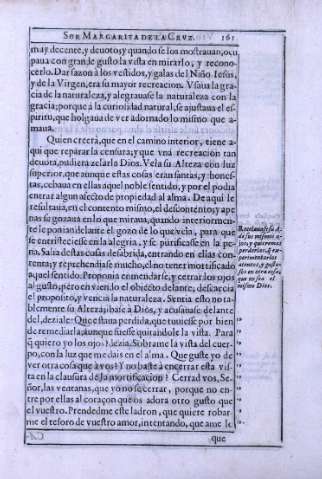 SOR MARGARITA DE LA CRVZ. 161
may decente, y deuotos, y quando se los mostrauan, ocu
paua con grande gusto la vista en mirarlo, y recono-
cerlo. Dar sazon à los vestidos, y galas del Niño Iesus,
y de la Virgen, era su mayor recreacion. Vsaua la gra-
cia de la naturaleza, y alegrauase la naturaleza con la
gracia; porque à la curiosidad natural, se ajustaua el es-
piritu, que holgaua de ver adornado lo mismo que a-
maua.
Quien creerà, que en el camino interior, tiene a-
qui que reparar la censura; y que vna recreacion tan
deuota, pudiera zelarla Dios. Vela su Alteza con luz
superior, que aunque estas cosas eran santas, y hones-
tas, cebaua en ellas aquel noble sentido, y por el podia
entrar algun afecto de propiedad al alma. De aqui le
resultaua, en el contento mismo, el descontento; y ape
nas su gozaua en lo que miraua, quando interiormen-
te le ponian delante el gozo de lo que veìa, para que
se entristeciesse en la alegria, y se purificasse en la pe-
na. Salia destas cosas desabrida, entrando en ellas con-
tenta; y reprehendiase mucho, el no tener mortificado
aquel sentido. Proponia enmendarse, y cerrar los ojos
al gusto; pero en viendo el obiecto delante; desfacia
el proposito, y vencia la naturaleza. Sentia esto no ta-
blemente su Alteza; ibase à Dios, y acusauase delante
del, deziale: Que estaua perdida, que tuuiesse por bien
de remediarla, aunque fuesse quitandole la vista. Para
q̃ quiero yo los ojos? dezia. Sobrame la vista del cuer-
po, con la luz que me dais en el alma. Que guste yo de
ver otra cosa que à vos? Y no baste à encerrar esta vis-
ta en la clausura de la mortificacion? Cerrad vos, Se-
ñor, las ventanas, que yo no sè cerrar, porque no en-
tre por ellas al coraçon que os adora otro gusto que
el vuestro. Prendedme este ladron, que quiere robar-
me el tesoro de vuestro amor, intentando, que ame le
que